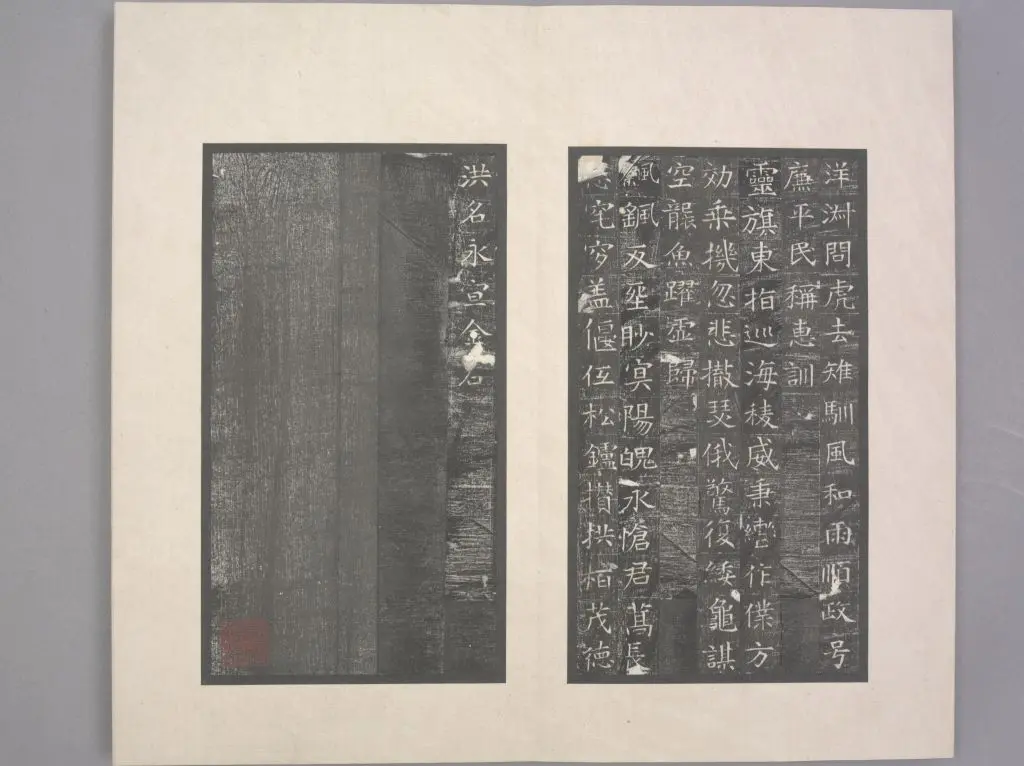 洋渊問虎去雉馴風和雨順政号
廉平民稱惠訓
靈旗東指巡海稜威秉轡作僕方
効乘機忽悲撤瑟俄驚復緌龜謀
空襲魚躍虛歸
飆飆反葬眇冥陽魄永愴君蒿長
窀穸盖偃伍松鑪攢拱栢茂德
洪名永宣金石